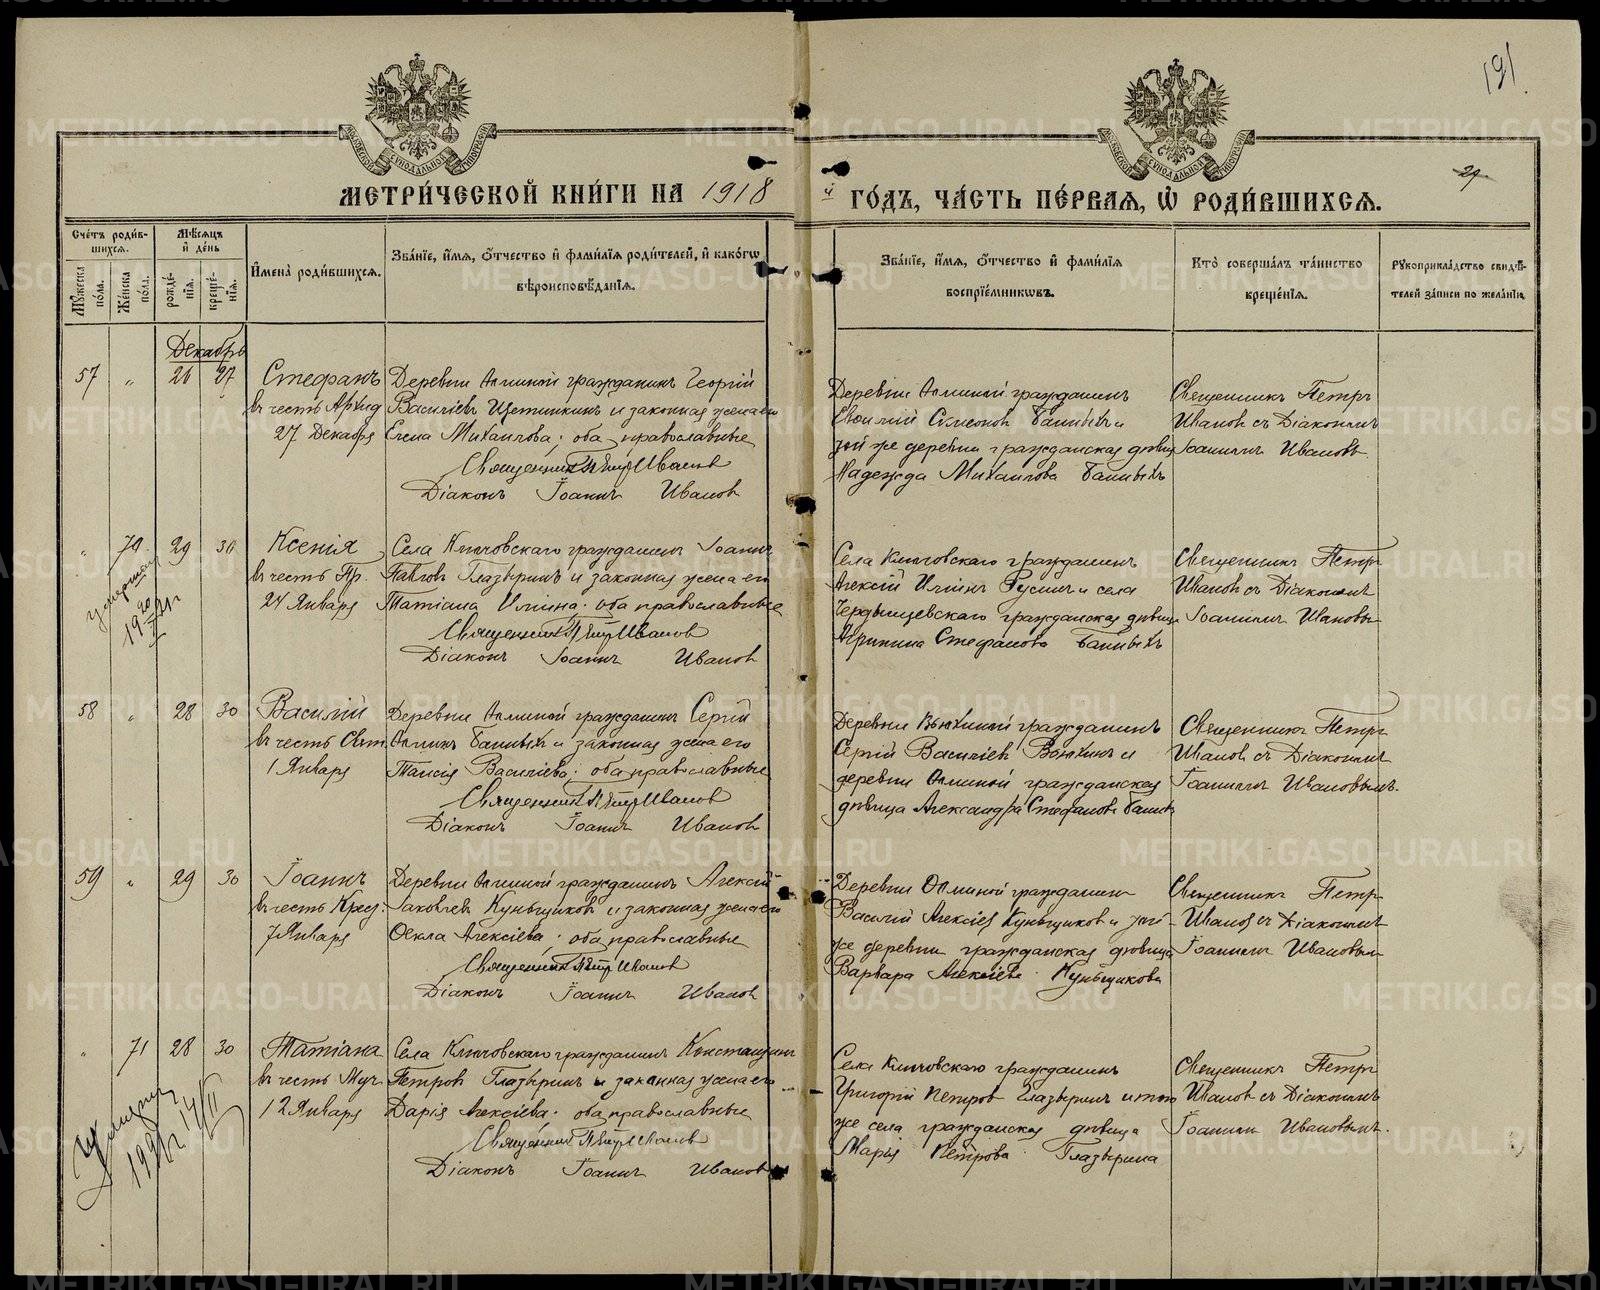 191
МОСКОВСКОЙ СУНОДАЛЬНОЙ ТИПОГРАФІИ
МОСКОВСКОЙ СУНОДАЛЬНОЙ ТИПОГРАФІИ
29
МЕТРИ́ЧЕСКОЙ КНИ́ГИ НА 1918
й ГО́ДЪ, ЧА́СТЬ ПЕ́РВАЯ, Ѡ҆ РОДИ́ВШИХСЯ.
Сче́тъ роди́вшихся.
Му́жеска по́ла.
Же́нска по́ла.
Мѣ́сяцъ и҆ де́нь
рожде́нїя.
креще́нїя.
И҆мена̀ роди́вшихся.
Зва́нїе, и҆́мя, ѻ҆́тчество и҆ фами́лїя роди́телей, и҆ како́гѡ вѣроисповѣ́данїя.
Зва́нїе, и҆́мя, ѻ҆́тчество и҆ фами́лїя воспрїе́мникѡвъ.
Кто̀ соверша́лъ та́инство креще́нїя.
Рꙋкоприкла́дство свидѣ́телей за́писи по жела́нїю.
Декабрь
57 „ 26 27
Стефанъ
въ честь Архид.
27 Декабря
Деревни гражданинъ Георгій
Василіевъ Щетинкинъ и законная жена его
Елена Михаилова; оба православные
Священникъ Петръ Ивановъ
Діаконъ Іоаннъ Ивановъ
Деревни гражданинъ
Симеоновъ и
той же деревни гражданская дѣвица
Надежда Михаилова
Священникъ Петръ
Ивановъ съ Діакономъ
Іоанномъ Ивановъ
„ 70 29 30
Ксенія
въ честь Пр.
24 Января
Села Ключовскаго гражданинъ Іоаннъ
Павловъ Глазыринъ и законная жена его
Татіана Иліина; оба православные
Священникъ Петръ Ивановъ
Діаконъ Іоаннъ Ивановъ
Села Ключовскаго гражданинъ
Алексій Иліинъ Русинъ и села
гражданская дѣвица
Стефанова
Священникъ Петръ
Ивановъ съ Діакономъ
Іоанномъ Ивановы
58 „ 28 30
Василій
въ честь Свят.
1 Января
Деревни гражданинъ Сергій
и законная жена его
Таисія Василіева; оба православные
Священникъ Петръ Ивановъ
Діаконъ Іоаннъ Ивановъ
Деревни Вьюхиной гражданинъ
Сергій Василіевъ Вьюхинъ и
деревни гражданская
дѣвица Александра Стефанова
Священникъ Петръ
Ивановъ съ Діакономъ
Іоанномъ Ивановымъ.
59 „ 29 30
Іоаннъ
въ честь Крест.
7 Января
Деревни гражданинъ Алексій
Іаковлевъ Куньщиковъ и законная жена его
Ѳекла Алексіева; оба православные
Священникъ Петръ Ивановъ
Діаконъ Іоаннъ Ивановъ
Деревни гражданинъ
Василій Алексіев Куньщиковъ и той
же деревни гражданская дѣвица
Варвара Алексіева Куньщикова
Священникъ Петръ
Ивановъ съ Діакономъ
Іоанномъ Ивановым
„ 71 28 30
Татіана
въ честь Муч.
12 Января
Села Ключовскаго гражданинъ Константинъ
Петровъ Глазыринъ и законная жена его
Дарія Алексіева; оба православные
Священникъ Петръ Ивановъ
Діаконъ Іоаннъ Ивановъ
Села Ключовскаго гражданинъ
Григорій Петровъ Глазыринъ и того
же села гражданская дѣвица
Марія Петрова Глазырина
Священникъ Петръ
Ивановъ съ Діакономъ
Іоанномъ Ивановымъ.
METRIKI.GASO-URAL.RU